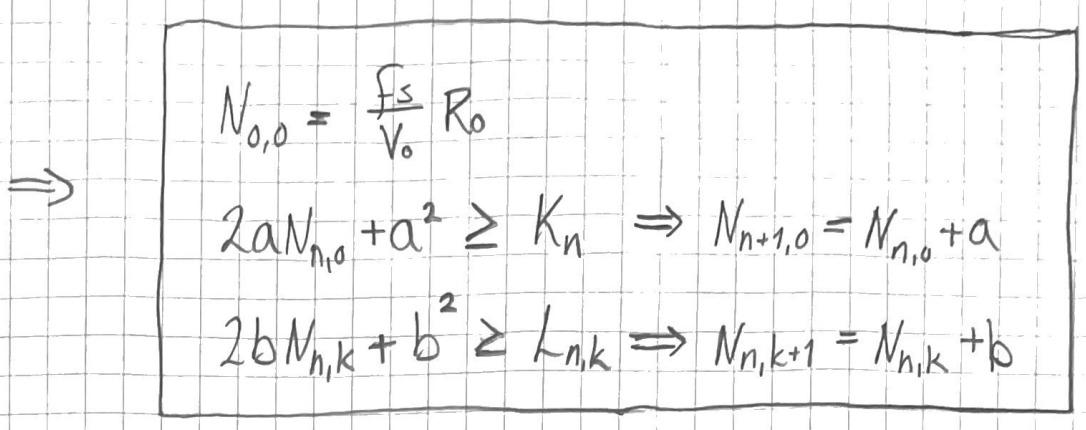 N₀,₀ = fs/V₀ R₀
⇒
2aNₙ,₀ + a² ≥ Kₙ ⇒ Nₙ₊₁,₀ = Nₙ,₀ + a
2bNₙ,ₖ + b² ≥ Lₙ,ₖ ⇒ Nₙ,ₖ₊₁ = Nₙ,ₖ + b